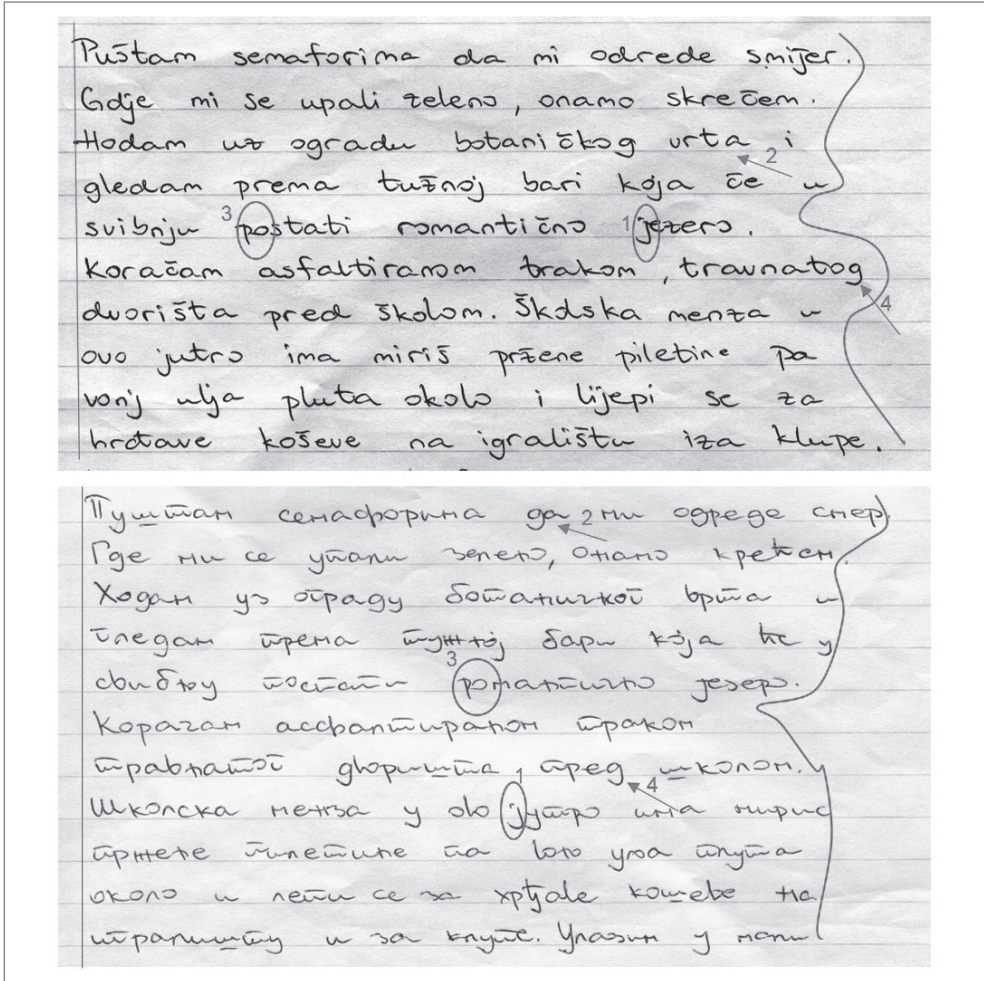 Puštam semaforima da mi odrede smijer.
Gdje mi se upali zeleno, onamo skrečem.
Hodam uz ogradu botaničkog vrta 2 i
gledam prema tužnoj bari koja če u
svibnju 3 postati romantično 1 jezero.
Koračam asfaltiranom trakom, travnatog
4
dvorišta pred školom. Školska menza u
ovo jutro ima miriš pržene piletine pa
vonj ulja pluta okolo i lijepi se za
hrđave koševe na igralištu iza klupe.
Пуштам семафорима да 2 ми одреде смер.
Где ми се упали зелено, онамо крећем.
Ходам уз ограду ботаничког врта и
гледам према тужној бари која ће у
свибњу постати 3 романтично језеро.
Корачам асфалтираном траком
травнатог дворишта пред школом.
1 4
Школска менза у ово јутро има мирис
пржене пилетине па воњ уља плута
около и лепи се за хрђаве кошеве на
игралишту иза клупе. Улазим у мали